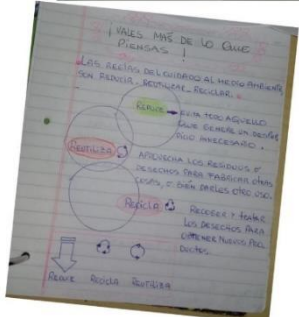 ¡VALES MAS DE LO QUE
PIENSAS!
LAS REGLAS DEL CUIDADO AL MEDIO AMBIENTE
SON REDUCIR, REUTILIZAR, RECICLAR.
REDUCE → EVITA TODO AQUELLO
QUE GENERE UN DESPER
DICIO INNECESARIO.
REUTILIZA
APROVECHA LOS RESIDUOS Y
DESECHOS PARA FABRICAR OTRAS
COSAS, O BIEN DARLES OTRO USO.
RECICLA
RECOGER Y TRATAR
LOS DESECHOS PARA
OBTENER NUEVOS PRO
DUCTOS.
REDUCE RECICLA REUTILIZA